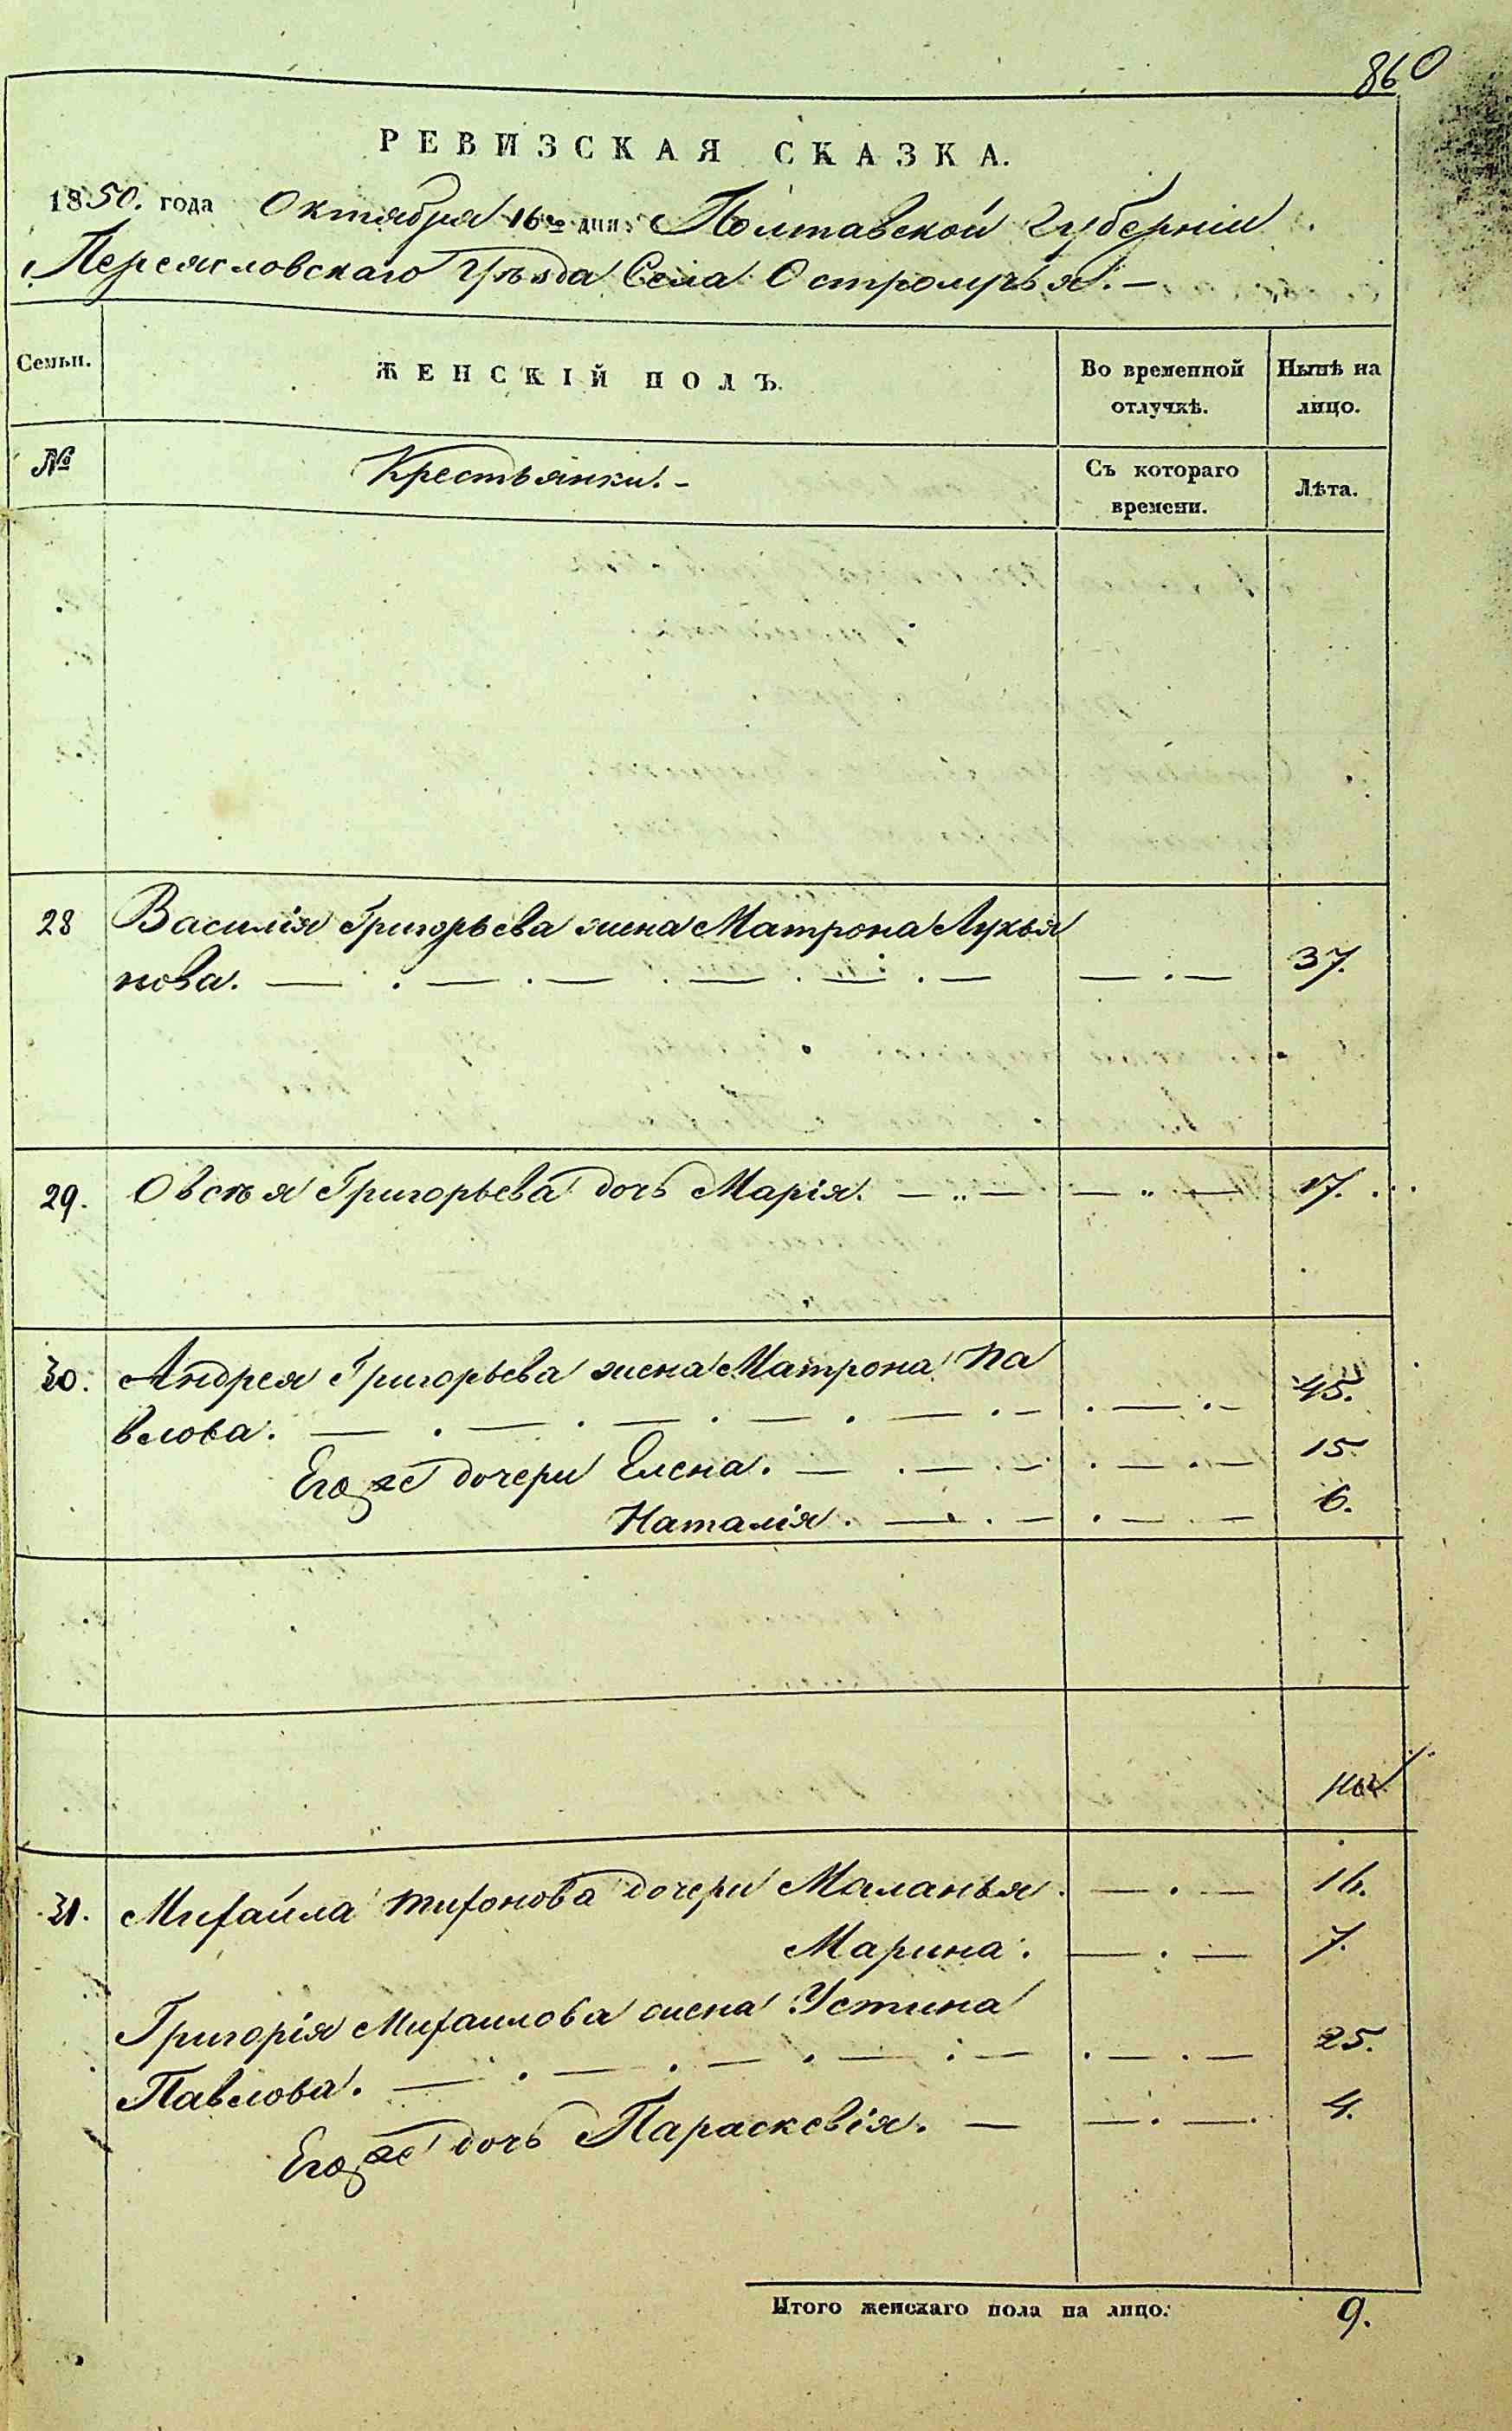 860
РЕВИЗСКАЯ СКАЗКА.
1850. года Октября 16го дня. Полтавской Губерніи
Переясловскаго Уѣзда Села Остролучья. —
Семьи. ЖЕНСКІЙ ПОЛЪ. Во временной отлучкѣ. Нынѣ на лицо.
№ Крестьянки. - Съ котораго времени. Лѣта.
28 Василія Григорьева жена Матрона Лукья
нова. — 37.
29. Овсѣя Григорьева дочь Марія. — 17.
30. Андрея Григорьева жена Матрона Па
влова. — 45.
Его же дочери Елена. — 15.
Наталія. — 6.
31. Михайла Тихонова дочери Маланья. — 16.
Марина. — 7.
Григорія Михаилова жена Устина
Павлова. — 25.
Его же дочь Параскевія. — 4.
Итого женскаго пола на лицо. 9.